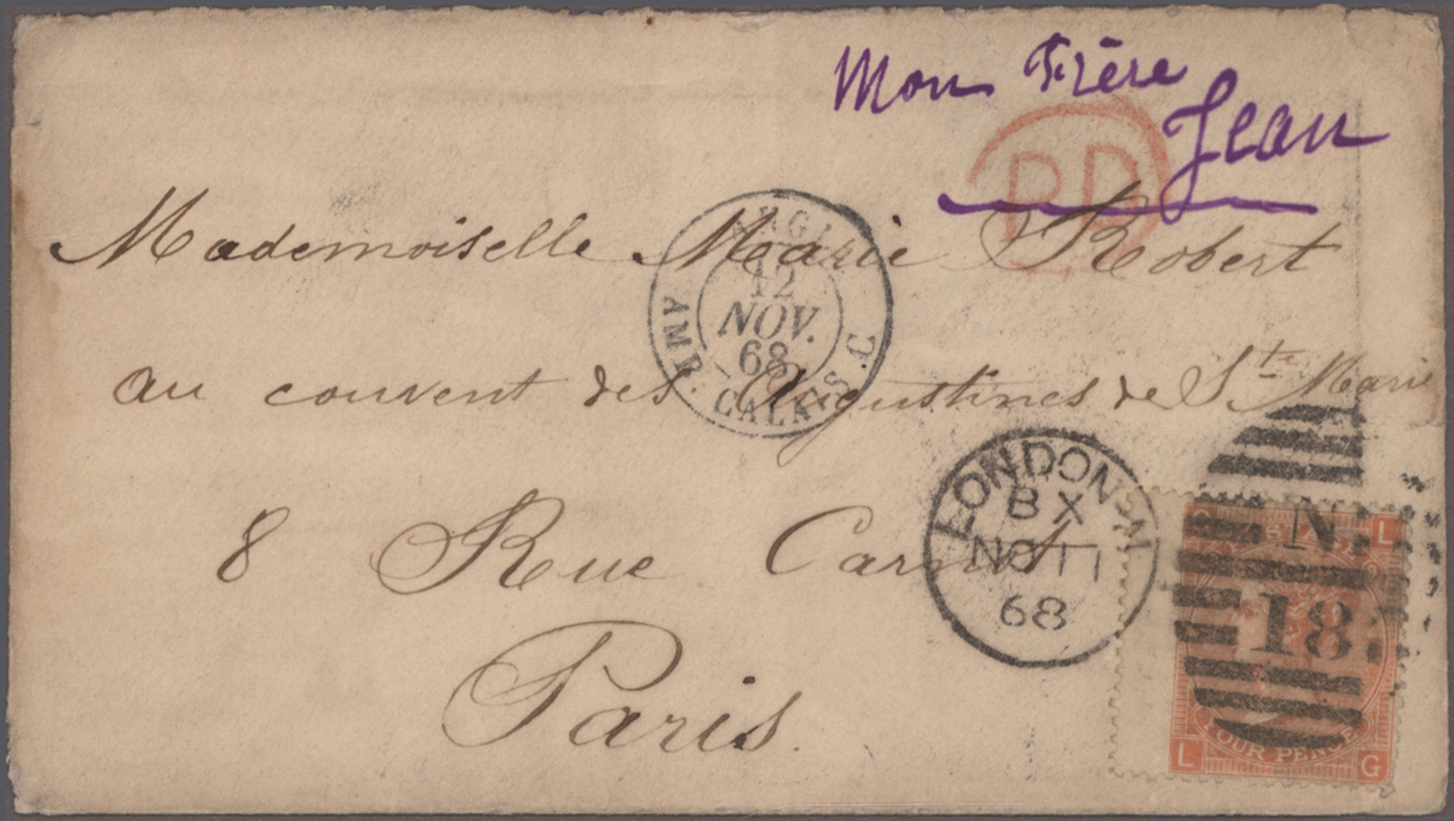 Mon Frère
Jean
PD
Mademoiselle Marie Robert
au couvent des Augustines de Ste Marie
8 Rue Carnot
Paris.
ANGL.
12
NOV.
68
AMB. CALAIS. C
LONDON-N
BX
NO 11
68
N.
18.
L
FOUR PENCE
L G